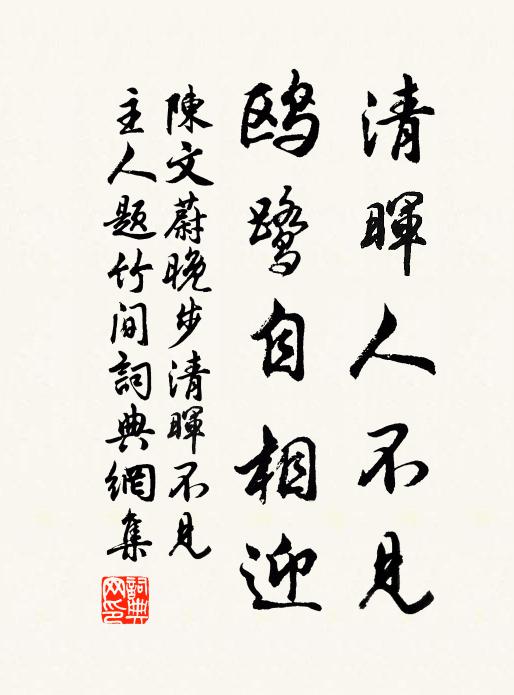 清暉人不見
鸥鷺自相迎
陳文蔚晚步清暉不見
主人题竹间詞典網集
詞典
网印